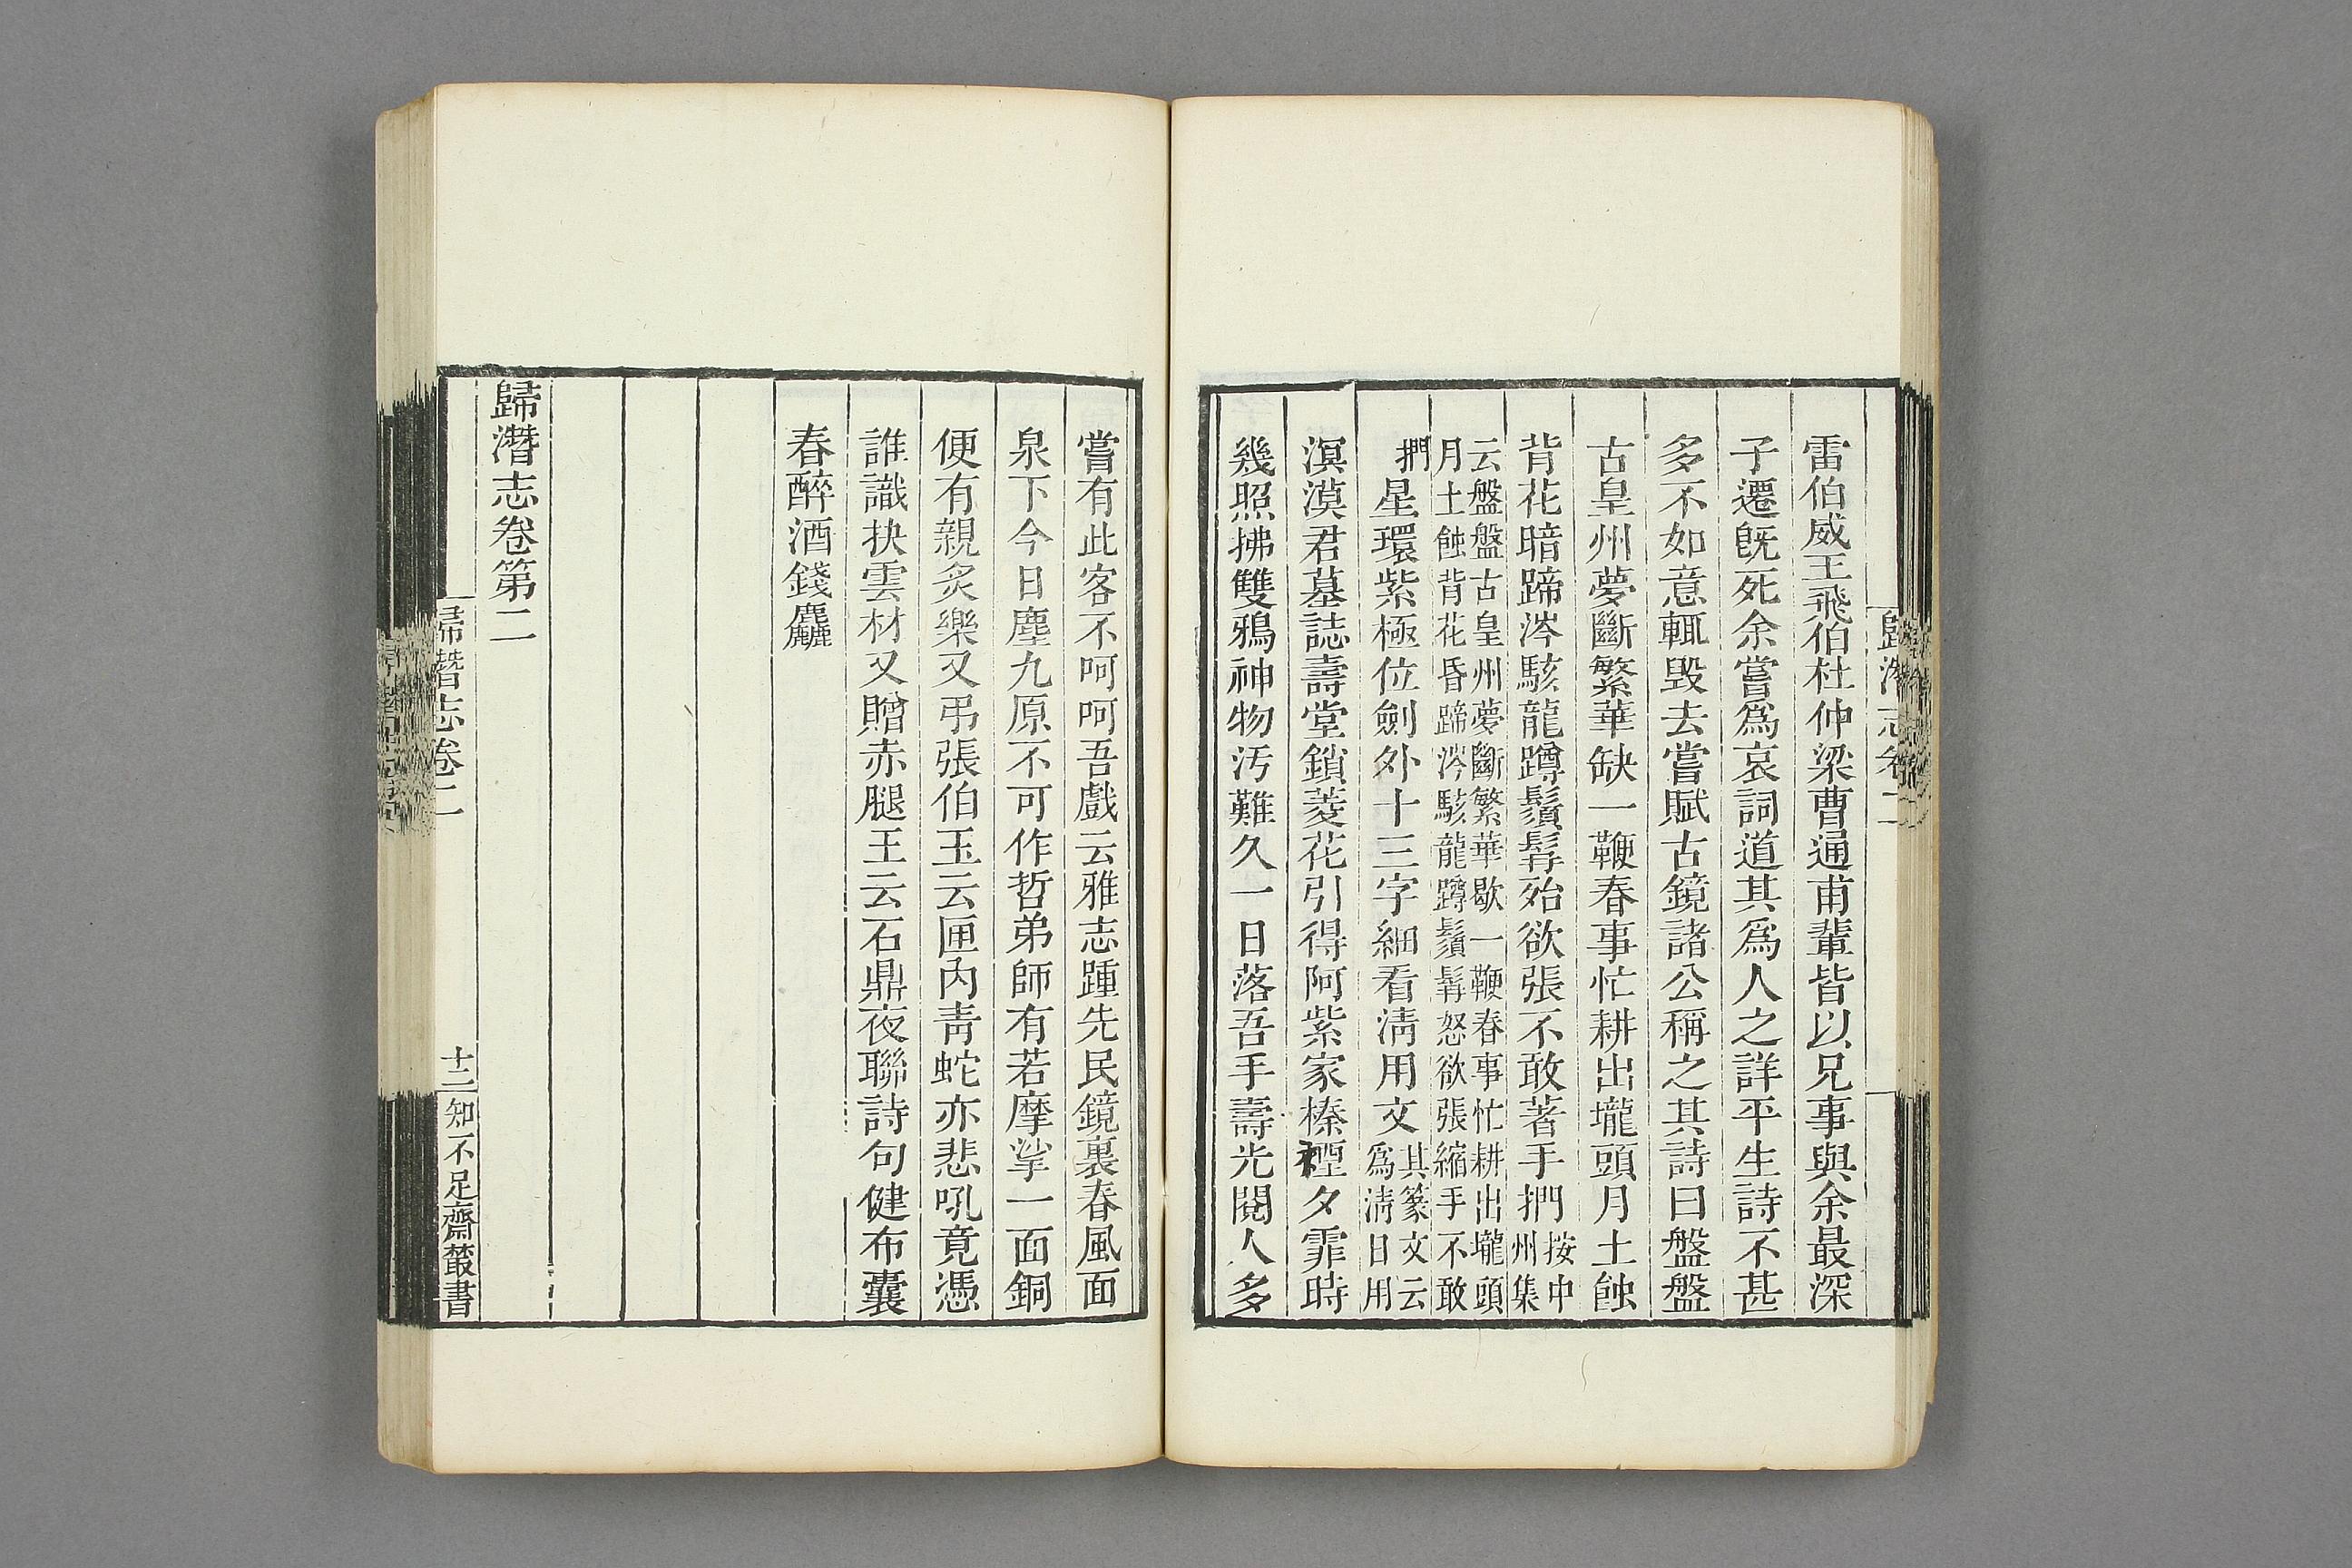 歸潛志卷二
雷伯威王飛伯杜仲梁曹通甫輩皆以兄事與余最深
子遷旣死余嘗爲哀詞道其爲人之詳平生詩不甚
多不如意輒毀去嘗賦古鏡諸公稱之其詩曰盤盤
古皇州夢斷繁華缺一鞭春事忙耕出壠頭月土蝕
背花暗蹄涔駭龍蹲鬚髯殆欲張不敢著手捫按中
州集
云盤盤古皇州夢斷繁華歇一鞭春事忙耕出壠頭
月土蝕背花昏蹄涔駭龍蹲鬚髯怒欲張縮手不敢
捫星環紫極位劍外十三字細看淸用文其篆文云
爲淸日用
溟漠君墓誌壽堂鎖菱花引得阿紫家榛煙夕霏時
幾照拂雙鴉神物汚難久一日落吾手壽光閱人多
嘗有此客不呵呵吾戲云雅志踵先民鏡裏春風面
泉下今日塵九原不可作哲弟師有若摩挲一面銅
便有親炙樂又弔張伯玉云匣內靑蛇亦悲吼竟憑
誰識抉雲材又贈赤腿王云石鼎夜聯詩句健布囊
春醉酒錢麤
歸潛志卷第二
歸潛志卷二
十二
知不足齋叢書